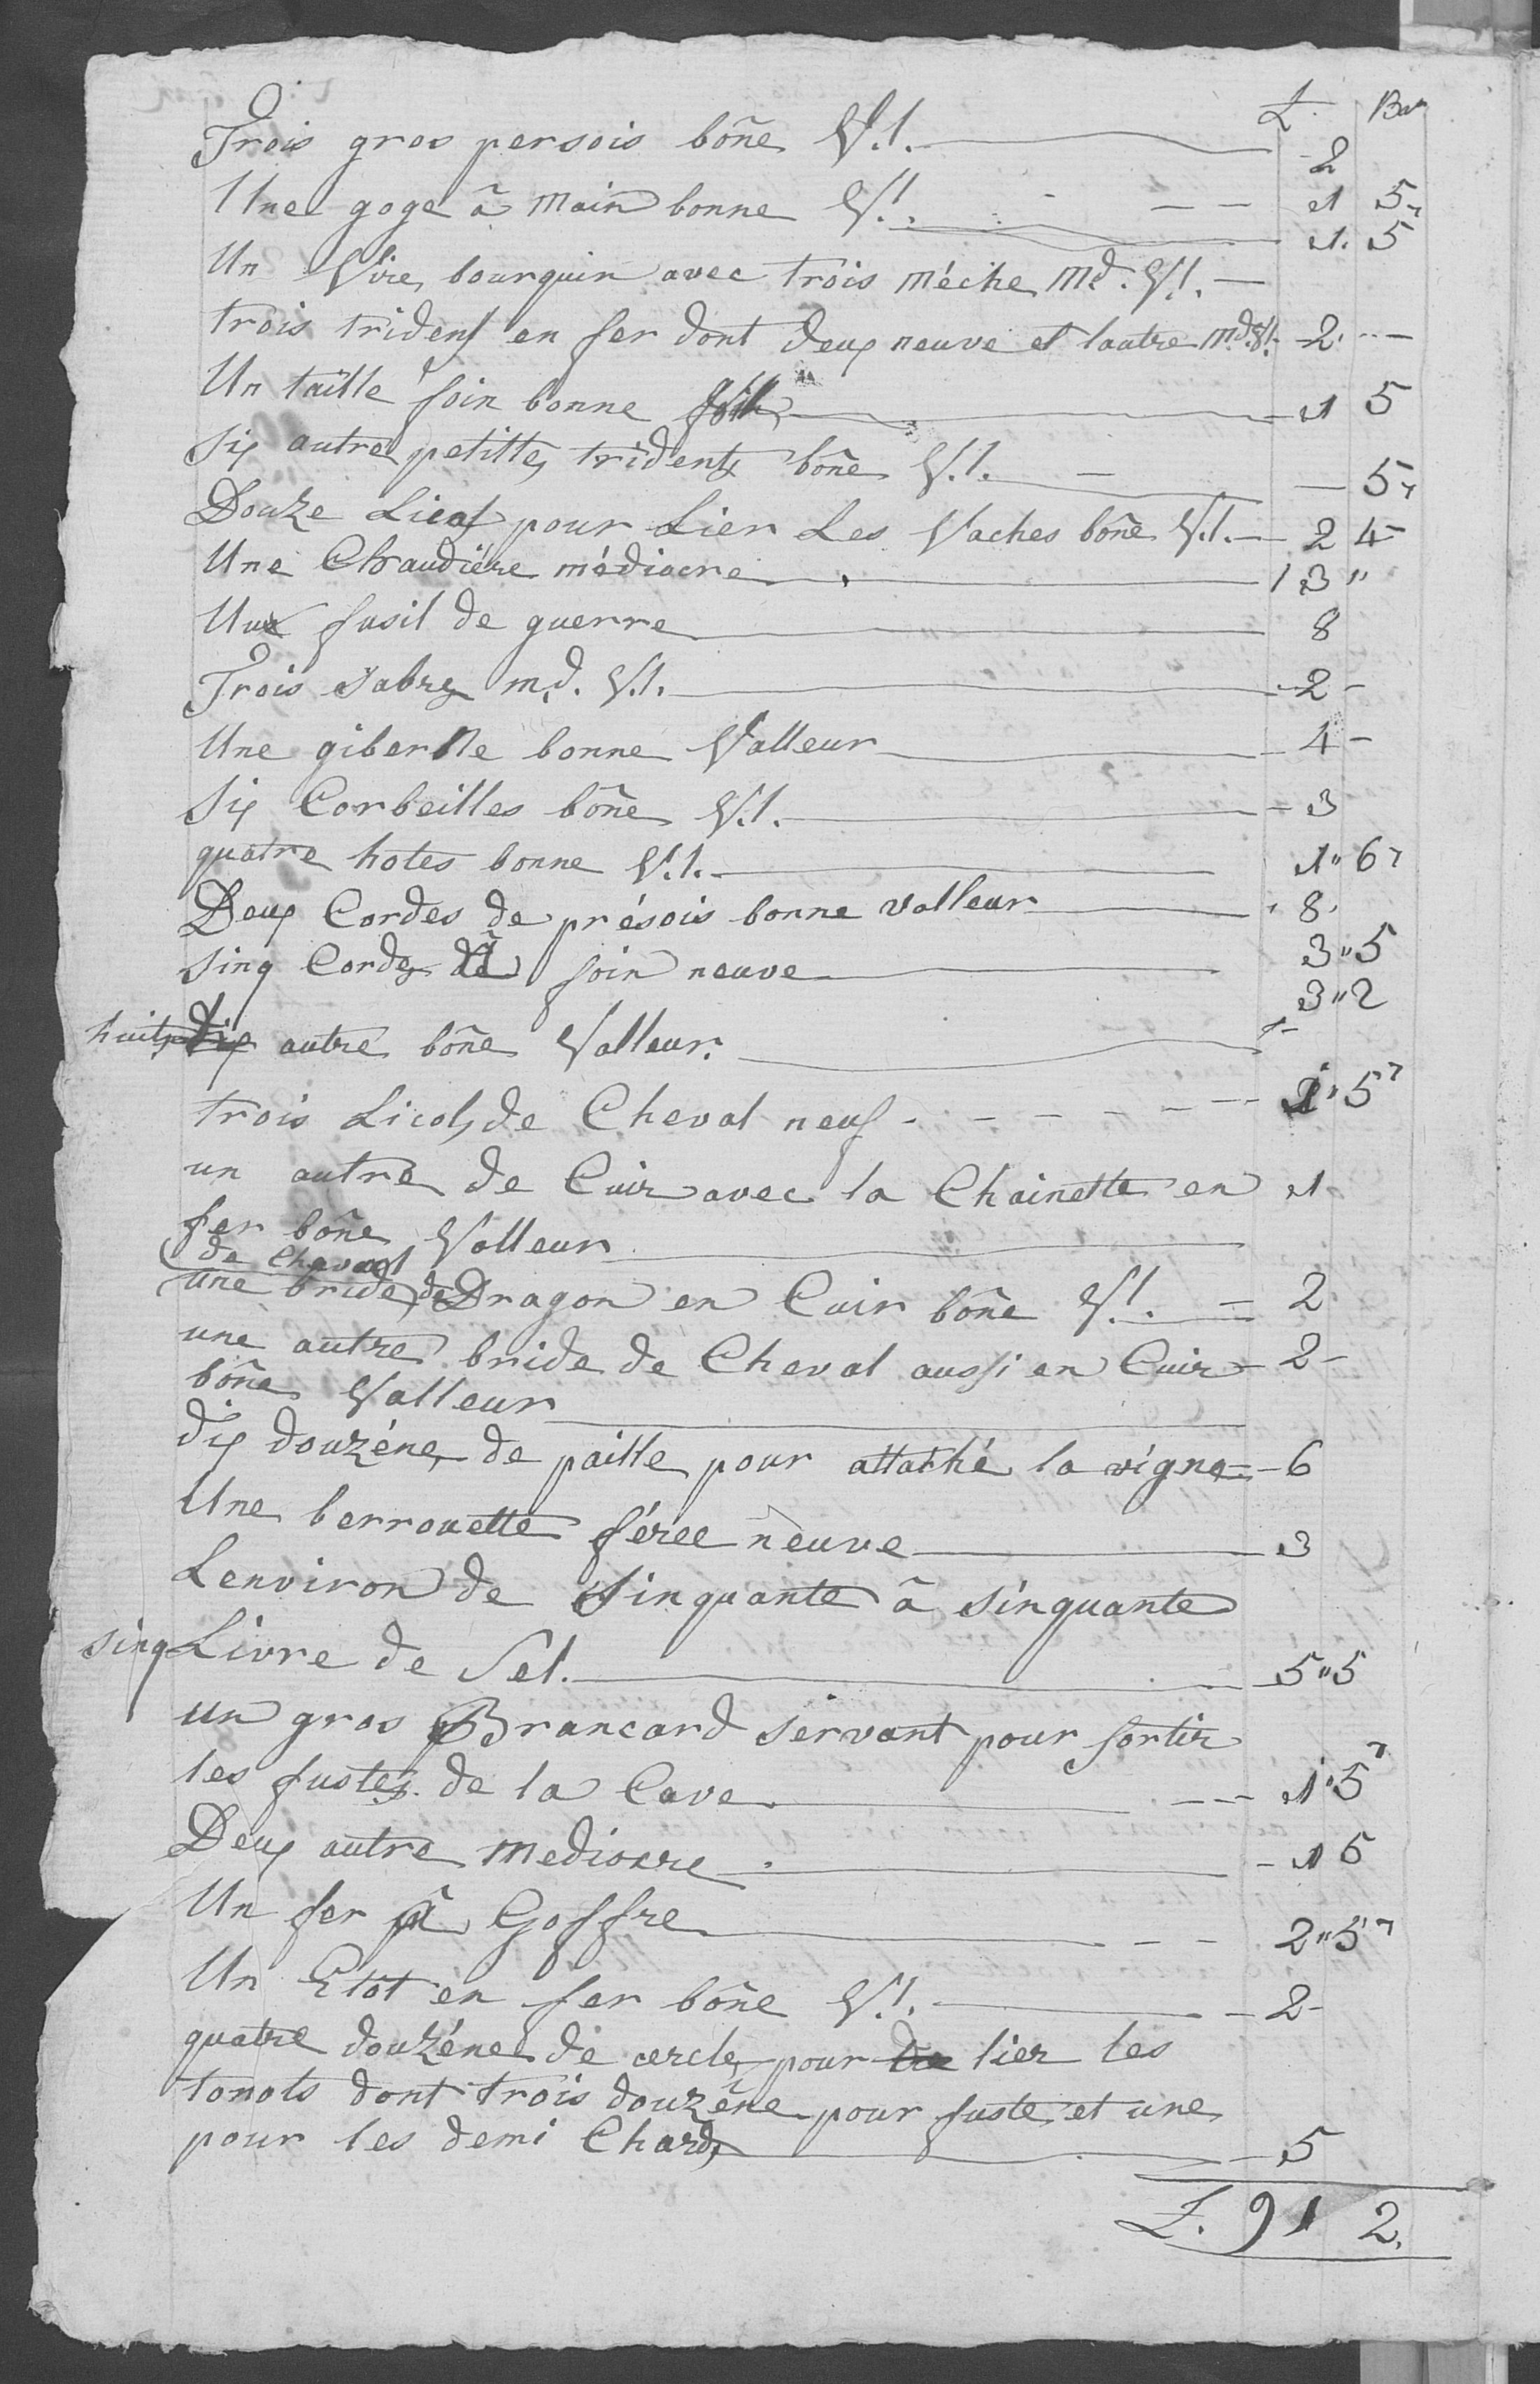 L. Bat
Trois gros persois bône V.l. 2
Une goge â main bonne V.l. 1 5
1. 5
Un Vire bourquin avec trois méche Md. V.l.
trois trident en fer dont deux neuve et lautre md. Vl. 2
Un taille foin bonne 1 5
six autre petitte tridents bône V.l. 5
Douze Licof pour Lier Les Vaches bône V.l. 2 4
Une Chaudiére médiocre 13 "
Une fusil de guerre 8
Trois sabre md. V.l. 2
Une giberne bonne Valleur 4
six Corbeilles bône V.l. 3
quatre hotes bonne V.l. 1" 6
Deux Cordes de présois bonne valleur 8
sinq Corde â foin neuve 3" 5
3" 2
huit dix autre bône Valleur.
trois Licol, de Cheval neuf 1" 5
un autre de Cuir avec la Chainette en 1
fer bône Valleur
de Cheval
une bride de Dragon en Cuir bône V.l. 2
une autre bride de Cheval aussi en Cuir 2
bône Valleur
dix douzéne de paille pour attaché la vigne 6
Une berrouette férée neuve 3
Lenviron de sinquante â sinquante
sinq Livre de Sel. 5" 5
un gros Brancard servant pour sortir
les fustes de la Cave 1" 5
Deux autre mediocre 1 5
Un fer â Goffre 2" 5
Un Etôt en fer bône V.l. 2
quatre douzéne de cercle pour lier les
tonots dont trois douzêne pour fuste et une
pour les demi Chard 5
L. 91 2.